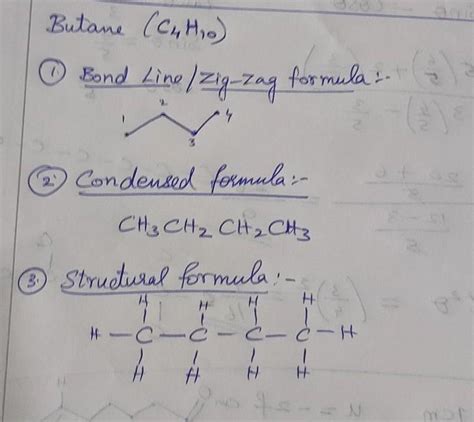 Butane (C4H10)
① Bond Line/Zig-zag formula:-
1 2 3 4
② Condensed formula:-
CH3 CH2 CH2 CH3
③ Structural formula:-
H H H H
H-C-C-C-C-H
H H H H